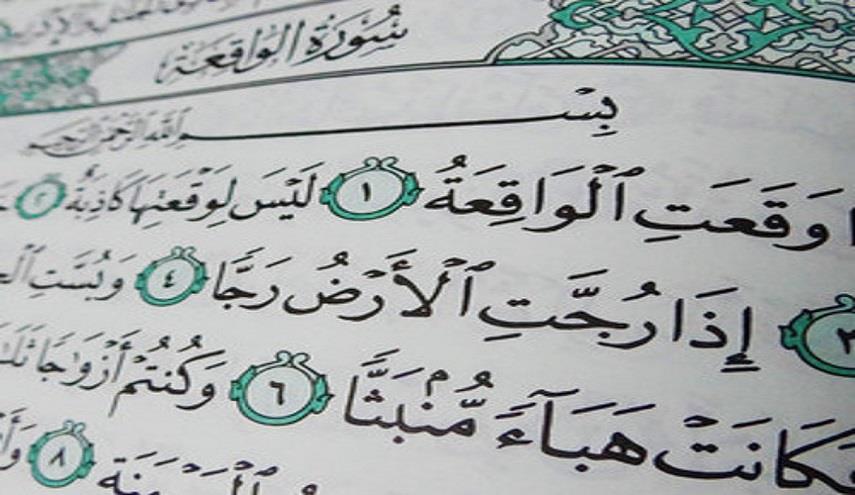 سُورَةُ الوَاقِعَة
بِسْمِ اللَّهِ الرَّحْمَٰنِ الرَّحِيمِ
وَقَعَتِ ٱلْوَاقِعَةُ ١ لَيْسَ لِوَقْعَتِهَا كَاذِبَةٌ ٢
٣ إِذَا رُجَّتِ ٱلْأَرْضُ رَجًّا ٤ وَبُسَّتِ
فَكَانَتْ هَبَآءً مُّنۢبَثًّا ٦ وَكُنتُمْ أَزْوَٰجًا
٨